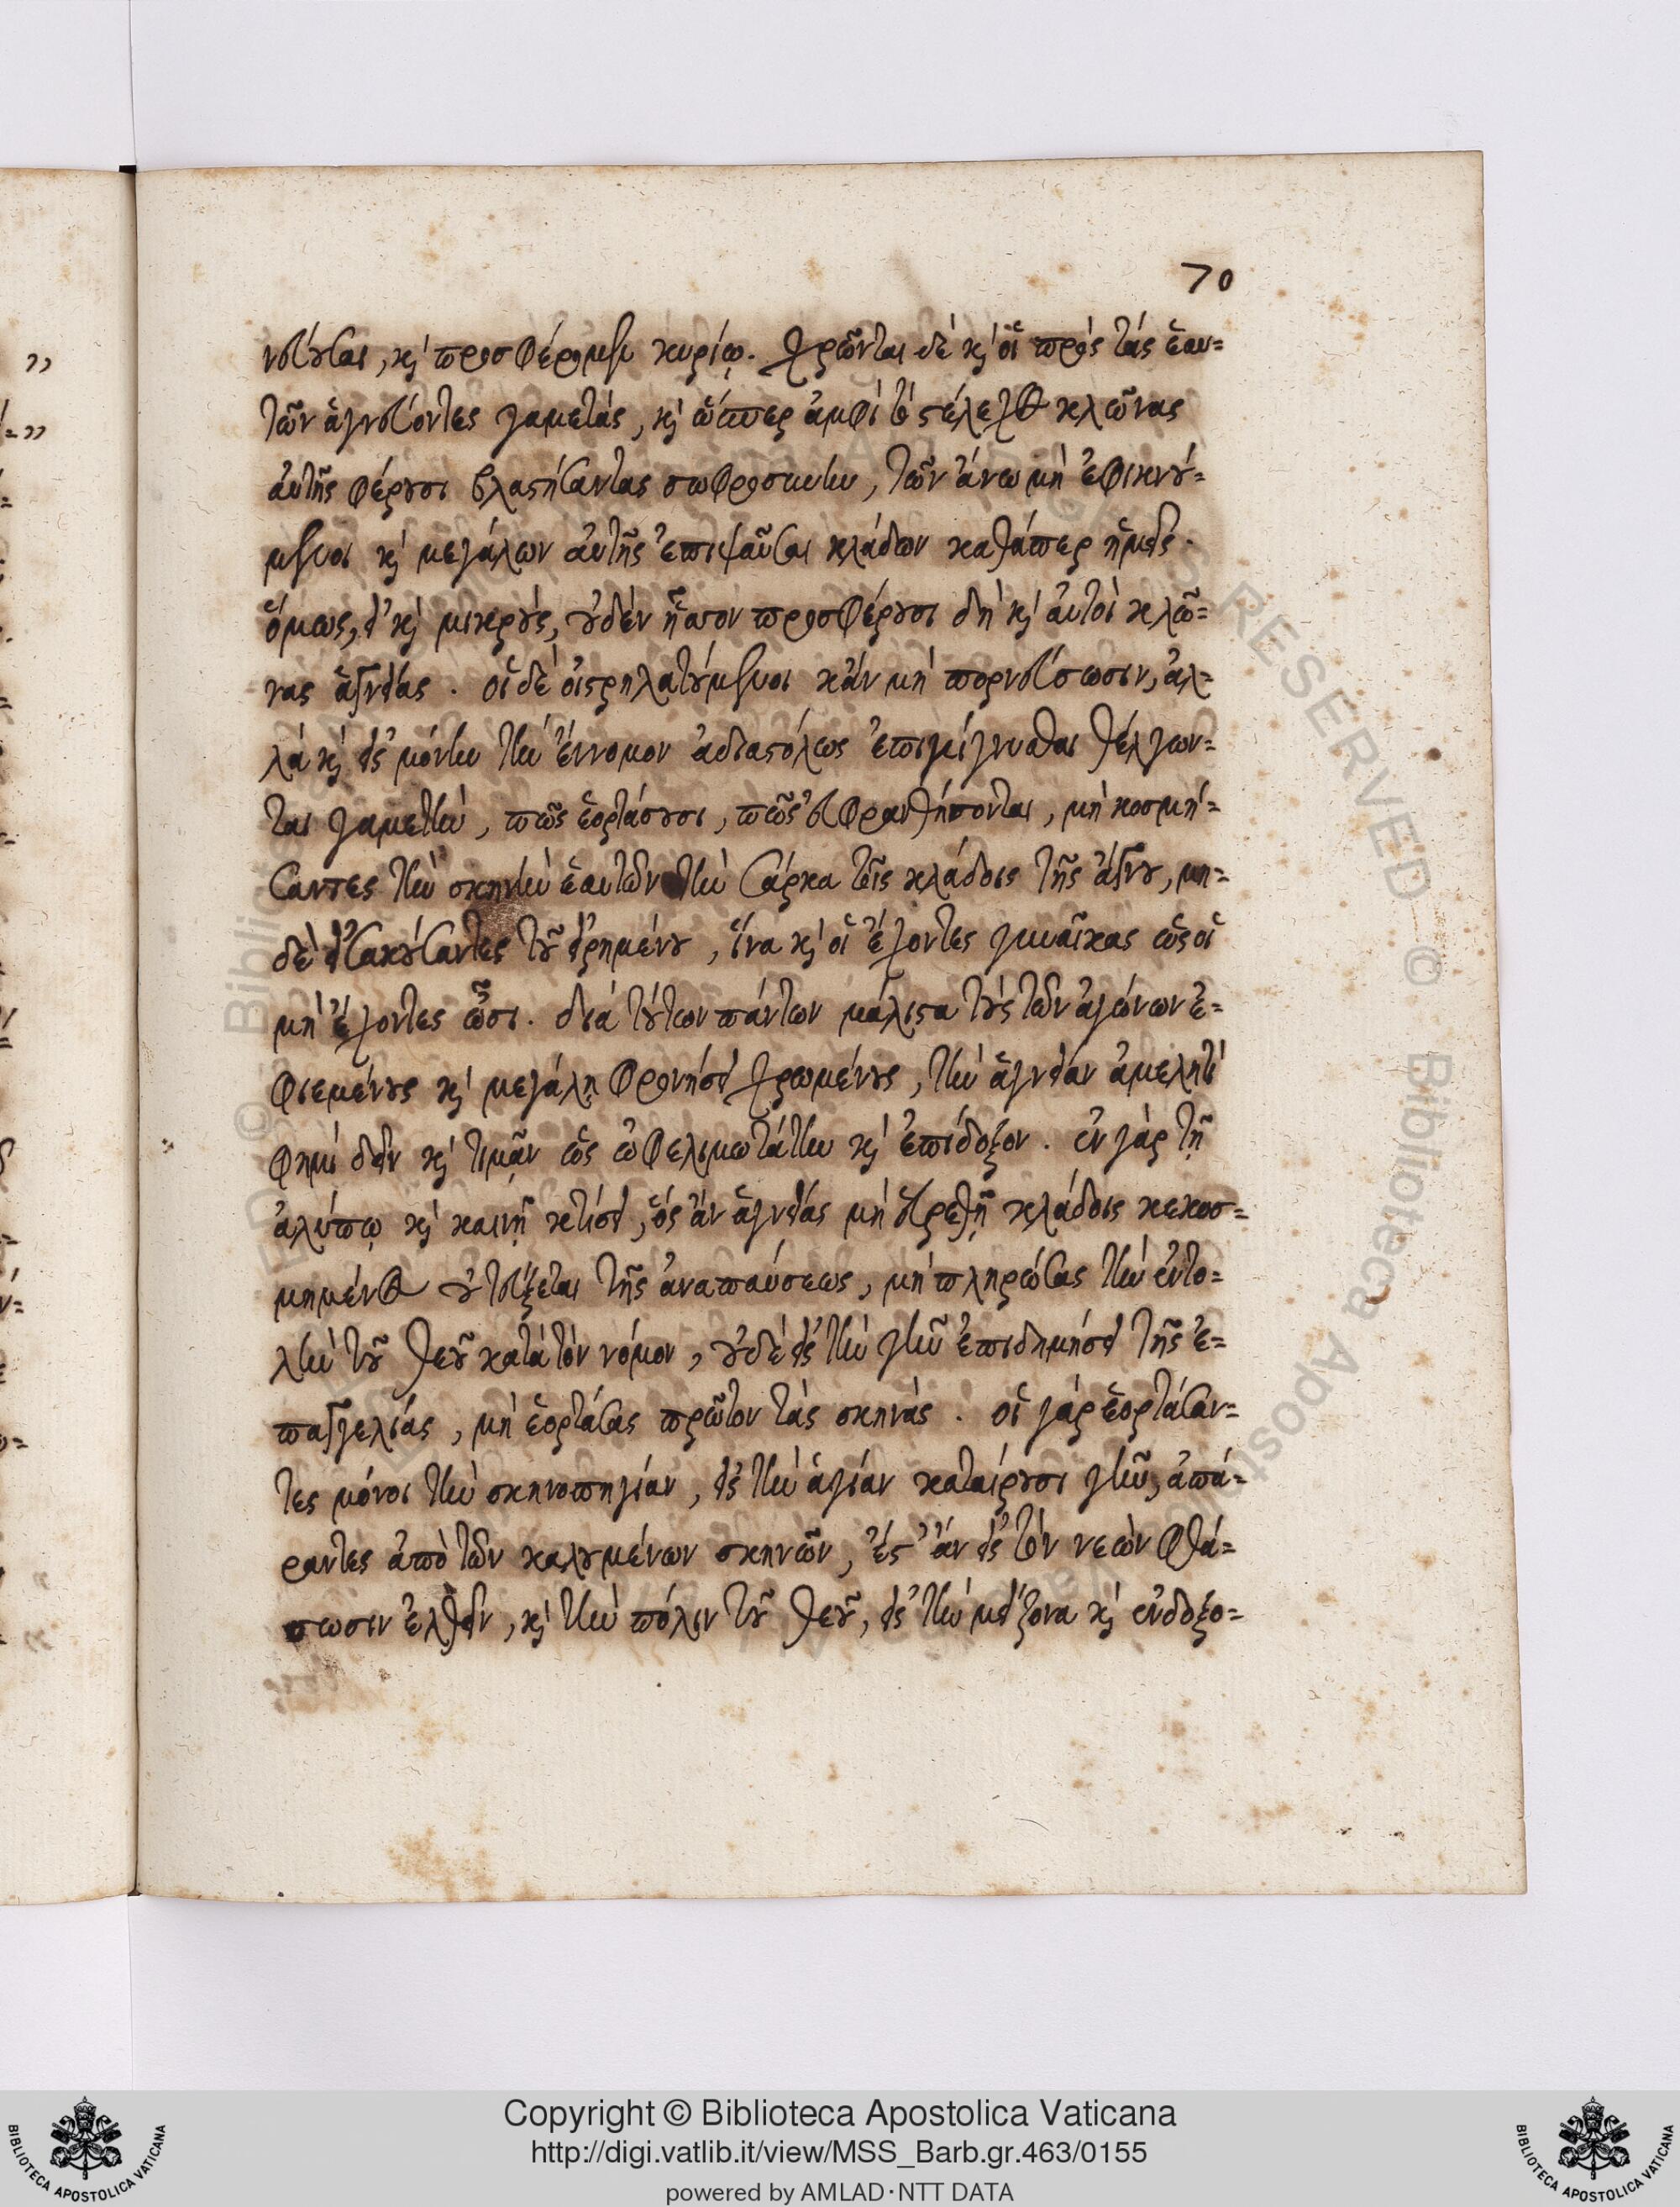 70
νεύεται, καὶ προσφέρομεν κυρίῳ. χρῶνται δὲ καὶ οἱ πρὸς τὰς ἑαυ=
τῶν ἁγνεύοντες γαμετὰς, καὶ ὥσπερ ἀμφὶ τὸ στέλεχος κλῶνας
αὐτῆς φέρουσι βλαστήσαντας σωφροσύνην, τῶν ἄνω μὴ ἐφικνού=
μενοι καὶ μεγάλων αὐτῆς ἐπιψαῦσαι κλάδων καθάπερ ἡμεῖς.
ὅμως, εἰ καὶ μικροὺς, οὐδὲν ἧσσον προσφέρουσι δὴ καὶ αὐτοὶ κλῶ=
νας ἁγνείας. οἱ δὲ οἰστρηλατούμενοι κἂν μὴ πορνεύσωσιν, ἀλ=
λὰ καὶ εἰς μόνην τὴν ἔννομον ἀδιαστόλως ἐπιμίγνυσθαι θέλγων=
ται γαμετὴν, πῶς ἑορτάσουσι, πῶς εὐφρανθήσονται, μὴ κοσμή=
σαντες τὴν σκηνὴν ἑαυτῶν τὴν σάρκα τοῖς κλάδοις τῆς ἄγνου, μη=
δὲ εἰσακούσαντες τοῦ εἰρημένου, ἵνα καὶ οἱ ἔχοντες γυναῖκας ὡς οἱ
μὴ ἔχοντες ὦσι. διὰ τούτων πάντων μάλιστα τοὺς τῶν ἀγώνων ἐ=
φιεμένους καὶ μεγάλῃ φρονήσει χρωμένους, τὴν ἁγνείαν ἀμελητὶ
φημὶ δεῖν καὶ τιμᾷν ὡς ὠφελιμωτάτην καὶ ἐπίδοξον. ἐν γὰρ τῇ
ἀλύπῳ καὶ καινῇ κτίσει, ὃς ἂν ἁγνείας μὴ εὑρεθῇ κλάδοις κεκοσ=
μημένος οὐ τεύξεται τῆς ἀναπαύσεως, μὴ πληρώσας τὴν ἐντο=
λὴν τοῦ θεοῦ κατὰ τὸν νόμον, οὐδὲ εἰς τὴν γῆν ἐπιδημήσει τῆς ἐ=
παγγελίας, μὴ ἑορτάσας πρῶτον τὰς σκηνάς. οἱ γὰρ ἑορτάσαν=
τες μόνοι τὴν σκηνοπηγίαν, εἰς τὴν ἁγίαν καταίρουσι γῆν, ἀπά=
ραντες ἀπὸ τῶν καλουμένων σκηνῶν, ἔς τ' ἂν εἰς τὸν νεὼν φθά=
σωσιν ἐλθεῖν, καὶ τὴν πόλιν τοῦ θεοῦ, εἰς τὴν μείζονα καὶ ἐνδοξο=
Copyright © Biblioteca Apostolica Vaticana
http://digi.vatlib.it/view/MSS_Barb.gr.463/0155
powered by AMLAD·NTT DATA